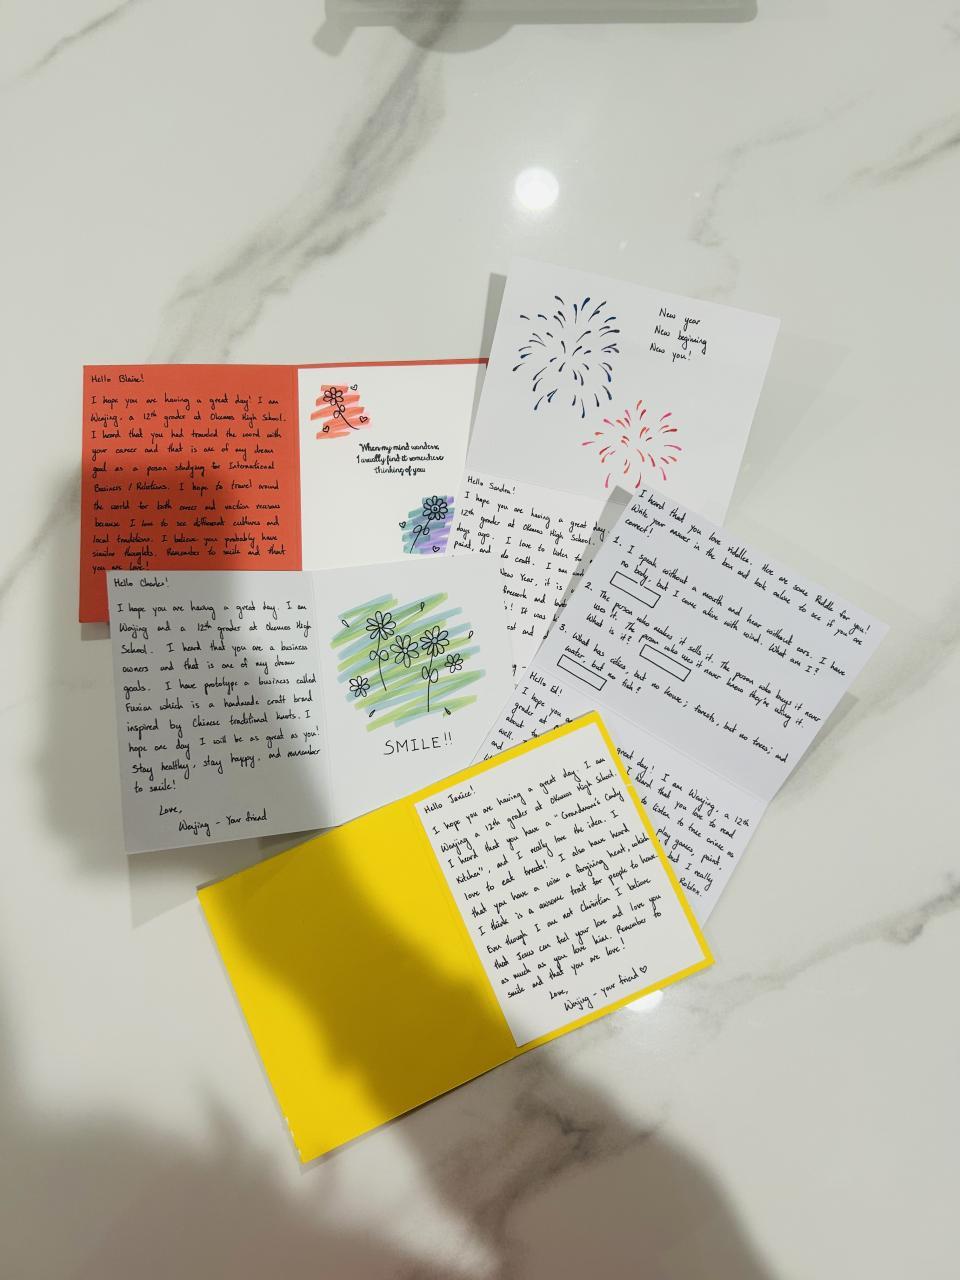 Hello Blaise!
I hope you are having a great day! I am
Wenjing, a 12th grader at Okemos High School.
I heard that you had traveled the word with
your career and that is one of my dream
goal as a person studying for International
Business / Relations. I hope to travel around
the world for both career and vaction reasons
because I love to see different cultures and
local traditions. I believe you probably have
similar thoughts. Remember to smile and that
you are love!
When my mind wanders,
I usually find it somewhere
thinking of you
New year
New beginning
New you!
Hello Sandra!
I hope you are having a great day
12th grader at Okemos High School.
days ago. I love to listen to
paint, and do craft. I am
New Year, it is
firework and
! It was
st and
I heard that you love Riddles. Here are some Riddle for you!
Write your answer in the box and look online to see if you are
correct!
1. I speak without a mouth and hear without ears. I have
no body, but I come alive with wind. What am I?
2. The person who makes it sells it. The person who buys it never
uses it. The person who uses it never knows they're using it.
What is it?
3. What has cities, but no house; forests, but no trees; and
water, but no fish?
Hello Ed!
I hope you a great day! I am Wenjing, a 12th
grader at heard that you love to read
about to listen to true crime as
well. I play games, paint,
and but I really
Roblox.
Hello Charles!
I hope you are having a great day. I am
Wenjing and a 12th grader at Okemos High
School. I heard that you are a business
owners and that is one of my dream
goals. I have prototype a business called
Fuxian which is a handmade craft brand
inspired by Chinese traditional knots. I
hope one day I will be as great as you!
Stay healthy, stay happy, and remember
to smile!
Love,
Wenjing - Your friend
SMILE!!
Hello Janice!
I hope you are having a great day. I am
Wenjing a 12th grader at Okemos High School.
I heard that you have a "Grandmom's Candy
Kitchen", and I really love the idea. I
love to eat treats! I also have heard
that you have a wise a forgiving heart, which
I think is a awsome trait for people to have.
Even though I am not Christian I believe
that Jesus can feel your love and love you
as much as you love him. Remember to
smile and that you are love!
Love,
Wenjing - your friend ♡